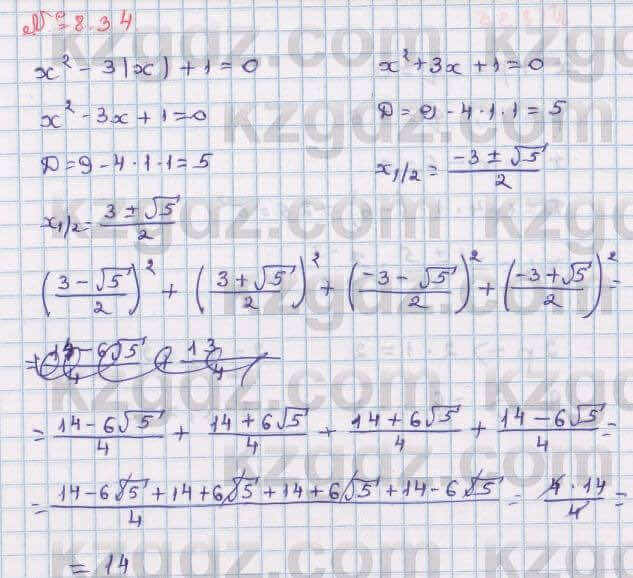 № 8.34
x² - 3|x| + 1 = 0
x² - 3x + 1 = 0
D = 9 - 4·1·1 = 5
x₁/₂ = (3 ± √5)/2
x² + 3x + 1 = 0
D = 9 - 4·1·1 = 5
x₁/₂ = (-3 ± √5)/2
((3 - √5)/2)² + ((3 + √5)/2)² + ((-3 - √5)/2)² + ((-3 + √5)/2)² =
= (14 - 6√5)/4 + (14 + 6√5)/4 + (14 + 6√5)/4 + (14 - 6√5)/4 =
= (14 - 6√5 + 14 + 6√5 + 14 + 6√5 + 14 - 6√5)/4 = (4·14)/4 =
= 14
kzgdz.com